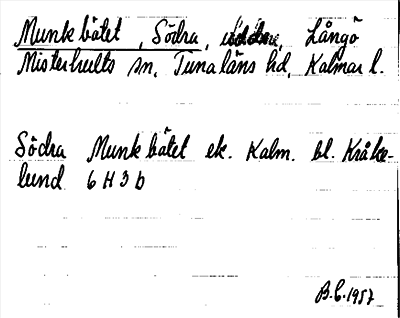 Munkbåtet, Södra, Långö
Misterhults sn, Tunaläns hd, Kalmar l.
Södra Munkbåtet ek. Kalm. bl. Kråke-
lund 6 H 3 b
B.C. 1957